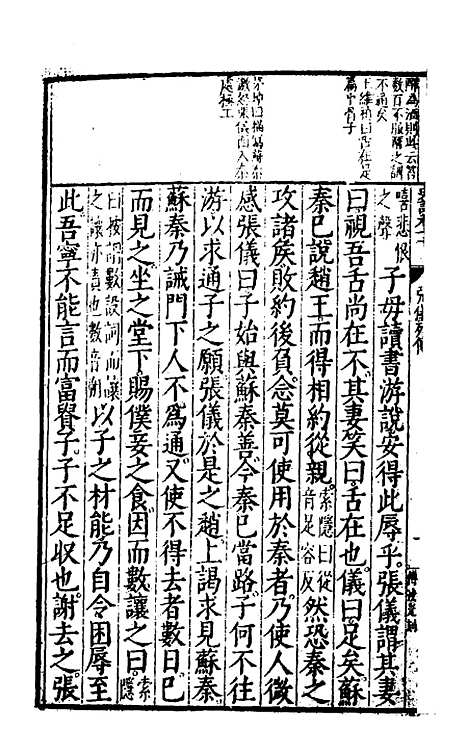 不通矣
嘻悲恨
之聲
子毋讀書游說安得此辱乎。張儀謂其妻
曰視吾舌尚在不。其妻笑曰。舌在也。儀曰。足矣。蘇
秦已說趙王而得相約從親。索隱曰從音足容反然恐秦之
攻諸矦敗約後負。念莫可使用於秦者。乃使人微
感張儀曰子始與蘇秦善。今秦已當路。子何不往
游以求通子之願張儀於是之趙上謁求見蘇秦。
蘇秦乃誡門下人不爲通。又使不得去者數日。已
而見之。坐之堂下賜僕妾之食。因而數讓之曰。索隱
曰按謂數設詞而讓之讓亦責也數音朔以子之材能乃自令困辱至
此吾寧不能言而富貴子。子不足収也。謝去之。張